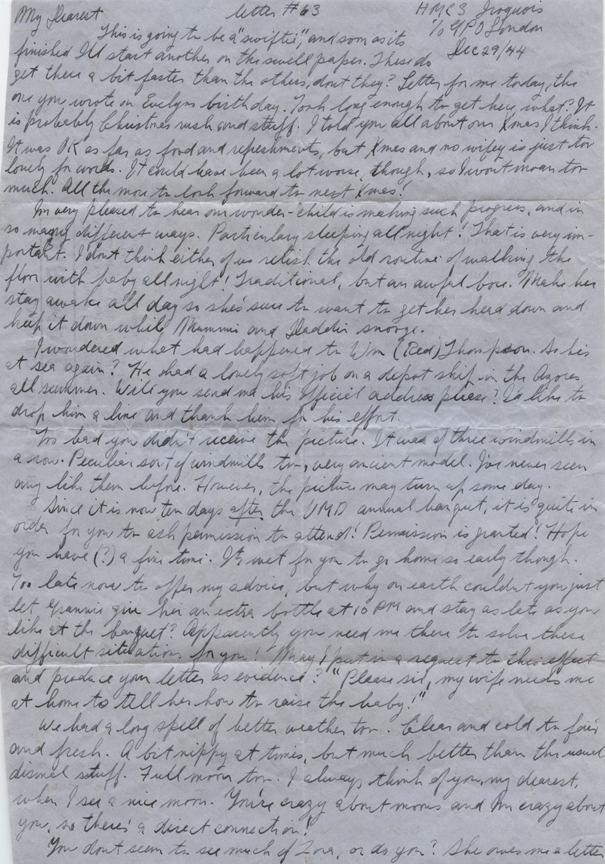 My Dearest letter #63 HMCS Iroquois
c/o GPO London
Dec 29/44
This is going to be a "swiftie", and soon as its
finished I'll start another on the swell paper. These do
get there a bit faster than the others, don't they? Letter for me today, the
one you wrote on Evelyn's birthday. Took long enough to get here, what? It
is probably Christmas rush and stuff. I told you all about our Xmas, I think.
It was OK as far as food and refreshments, but Xmas and no wifey is just too
lonely for words. It could have been a lot worse, though, so I wont moan too
much. All the more to look forward to next Xmas!
I'm very pleased to hear our wonder-child is making such progress, and in
so many different ways. Particulary sleeping all night! That is very im-
portant. I dont think either of us relish the old routine of walking the
floor with baby all night! Traditional, but an awful bore. Make her
stay awake all day so she's sure to want to get her head down and
keep it down while Mummie and Daddie snooze.
I wondered what had happened to Wm (Red) Thompson. Is he
at sea again? He had a lovely soft job on a depot ship in the Azores
all summer. Will you send me his official address please? I'd like to
drop him a line and thank him for his effort.
Too bad you didn't receive the picture. It was of three windmills in
a row. Peculiar sort of windmills too, very ancient model. I've never seen
any like them before. However, the picture may turn up some day.
Since it is now ten days after the UMD annual banquet, it is quite in
order for you to ask permission to attend! Permission is granted! Hope
you have (?) a fine time. It's wet for you to go home so early though.
Too late now to offer my advice, but why on earth couldn't you just
let Grannie give her an extra bottle at 10 PM and stay as late as you
like at the banquet? Apparently you need me there to solve these
difficult situations for you! May I put in a request to this effect
and produce your letter as evidence? "Please sir, my wife needs me
at home to tell her how to raise the baby!"
We had a long spell of better weather too. Clear and cold to fair
and fresh. A bit nippy at times, but much better than the usual
dismal stuff. Full moon too. I always think of you, my dearest,
when I see a nice moon. You're crazy about moons and I'm crazy about
you, so there's a direct connection!
You dont seem to see much of Zora, or do you? She owes me a letter